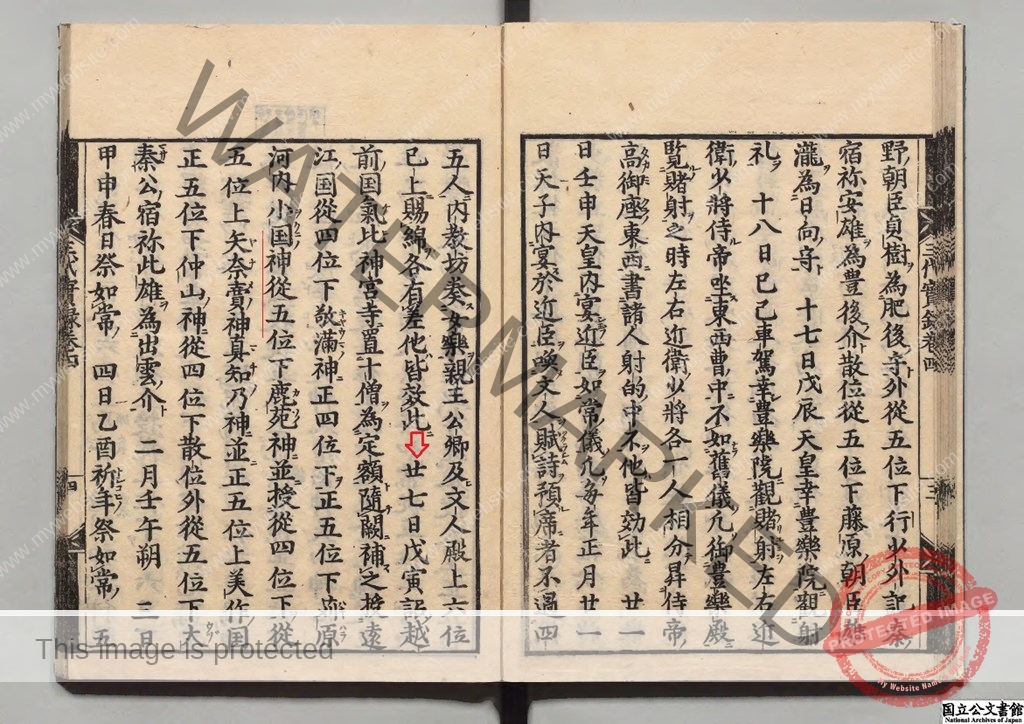 野朝臣貞樹為肥後守外從五位下行少外記秦
宿祢安雄為豊後介散位從五位下藤原朝臣雄
瀧為日向守　十七日戊辰天皇幸豊樂院觀射
礼　十八日己巳車駕幸豊樂院觀賭射左右近
衛少將侍帝坐東西曹中不如舊儀凢御豊樂殿
覧賭射之時左右近衛少將各一人相分昇侍帝
高御座東西書諸人射的中不他皆効此　廿一
日壬申天皇内宴近臣如常儀凢毎年正月廿一
日天子内宴於近臣喚文人賦詩預席者不過四
三代實錄卷四
三
五人内教坊奏女樂親王公卿及文人殿上六位
已上賜綿各有差他皆效此　廿七日戊寅詔越
前国氣比神宮寺置十僧為定額隨闕補之授遠
江国從四位下敬滿神正四位下正五位下原
河内小国神從五位下鹿苑神並授從四位下從
五位上矢奈賣神真知乃神並正五位上美作国
正五位下仲山神從四位下散位外從五位下大
秦公宿祢此雄為出雲介　二月壬午朔　三日
甲申春日祭如常　四日乙酉祈年祭如常　五
三代實錄卷四
四
WATERMARKED
www.mywebsite.com
This image is protected
COPYRIGHT PROTECTED
PROTECTED IMAGE
My Website Name
国立公文書館
National Archives of Japan